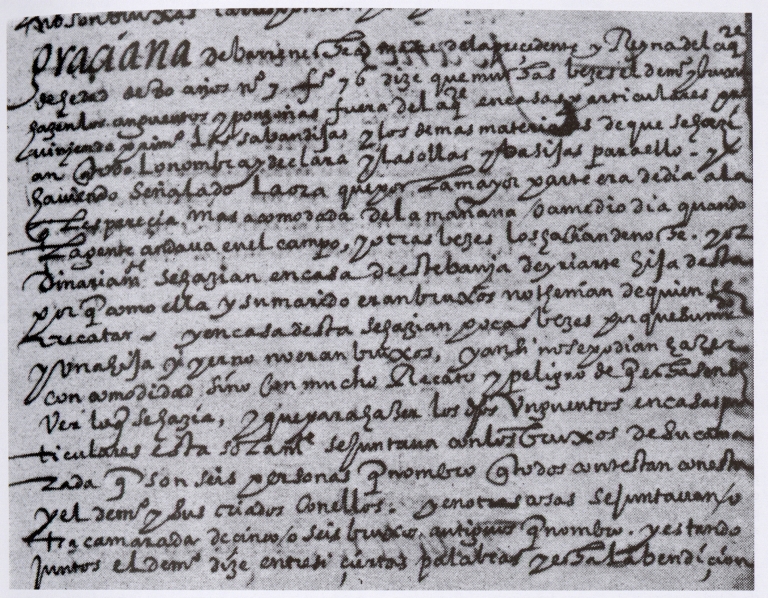 no son bruxas
graçiana de barrenechea madre de la precedente y Reyna del aqe
de hedad de 80 años nº 7 fº 76 dize que muchas bezes el demº y
hazen los unguentos y ponzoñas fuera del aqe en casas particulares
las sabandijas y los demas materiales de que se hazi
an que todo lo nombra y declara y las ollas y basijas para ello. y
haviendo señalado la ora que por la mayor parte era de dia a la
q les pereçia mas acomodada de la mañana / o a medio dia quando
la gente andava en el campo, y otras bezes los hazian de noche. y or
dinariamte se hazian en casa de estebania de yriarte hija desta
por q como ella y su marido eran bruxos no thenian de quien
Recatar y en casa desta se hazian pocas bezes porque su
y una hija y yerno no eran bruxos, y ansi no se podian hazer
con comodidad sino con mucho Recato y peligro de q
ver lo q se hazia, y que para hazer los dhos unguentos en casas par
ticulares esta solamte se juntava con los bruxos de su cama
rada q son seis personas q nombro q todos contestan con esta
y el demº y sus criados con ellos. y en otras casas se juntavan / o
tra camarada de cinco / o seis bruxos antiguos q nombro. y estando
juntos el demº dize entre si ciertas palabras y echa la bendiçion